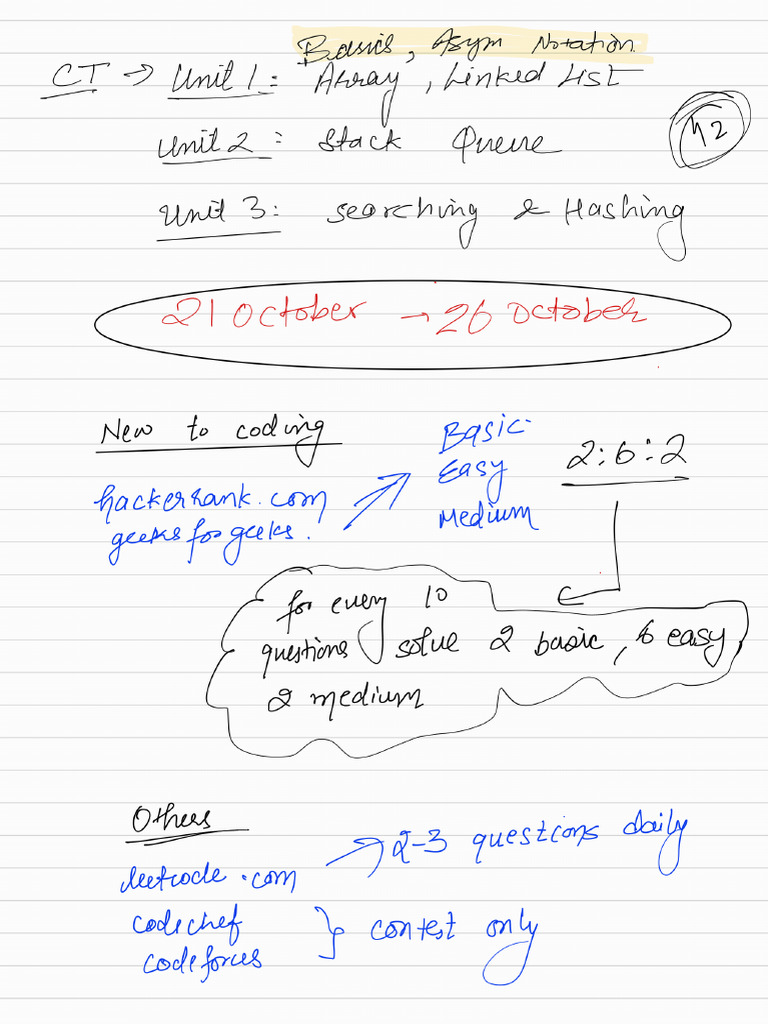 Basics, Asym Notation
CT → Unit 1 : Array, Linked List
Unit 2 : Stack Queue
42
Unit 3 : Searching & Hashing
21 October → 26 October
New to coding
hackerrank.com
geeksforgeeks.
Basic
Easy
Medium
2:6:2
for every 10
questions solve 2 basic, 6 easy,
2 medium
Others
leetcode.com → 2-3 questions daily
codechef
codeforces } contest only